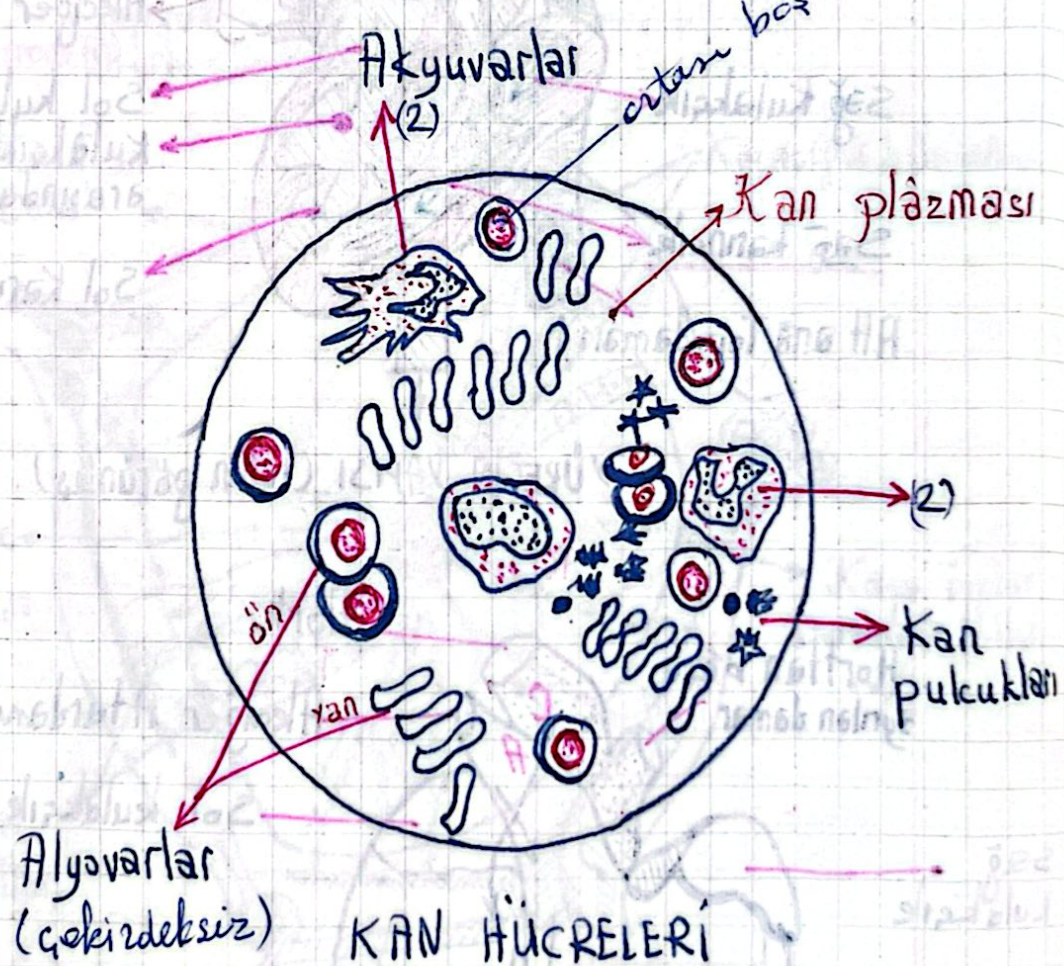 Akyuvarlar
(2)
ortası boş
Kan plâzması
(2)
ön
Kan
pulcukları
yan
Alyovarlar
(çekirdeksiz)
KAN HÜCRELERİ